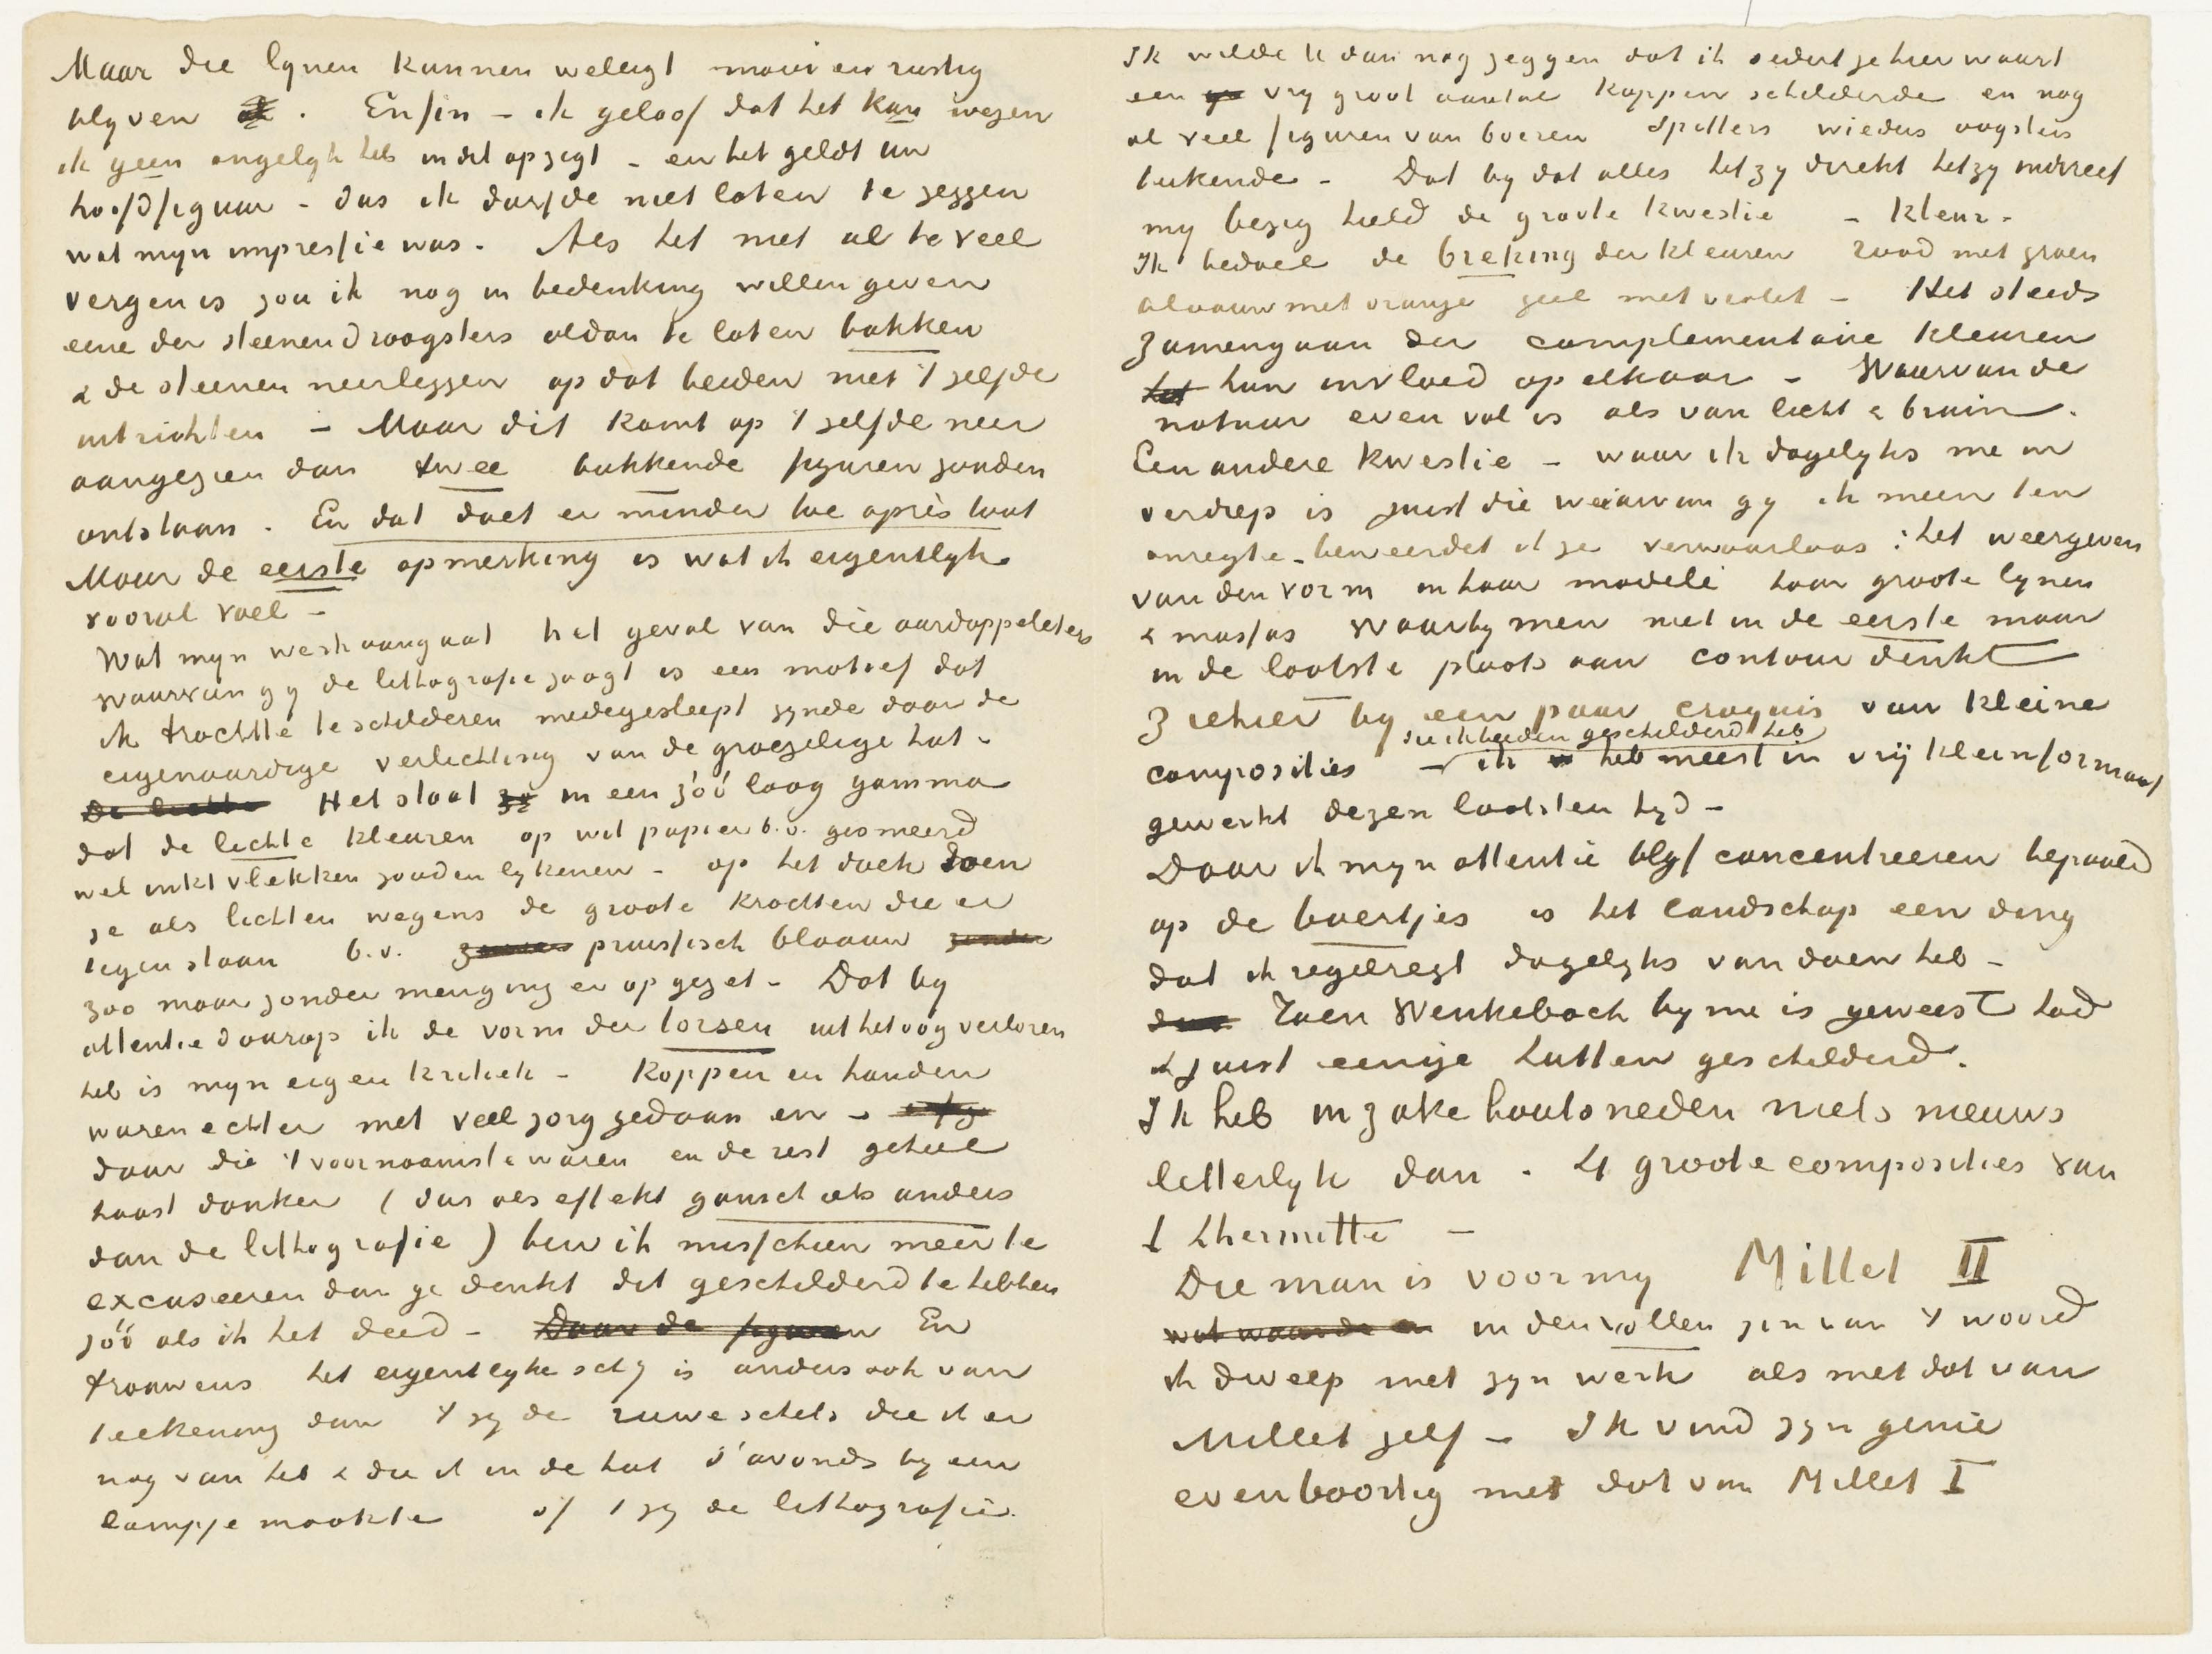 Maar die lynen kunnen weleigt mooi en rustig
blyven. Enfin – ik geloof dat het kan wezen
ik geen ongelyk heb in dit opzigt – en het geldt un
hoofdfiguur – dus ik durfde niet laten te zeggen
wat myn impressie was. Als het niet al te veel
vergen is zou ik nog in bedenking willen geven
eene der steenendraagsters aldan te laten bukken
& de steenen neerleggen opdat beiden niet 't zelfde
uitrichten – Maar dit komt op 't zelfde neer
aangezien dan twee bukkende figuren zouden
ontstaan. En dat doet er minder toe après tout
Maar de eerste opmerking is wat ik eigentlyk
vooral voel –
Wat myn werk aangaat het geval van die aardappeleters
waarvan gy de lithografie zaagt is een motief dat
ik trachtte te schilderen medegesleept zynde door de
eigenaardige verlichting van de groezelige hut –
Het staat in een zóó laag gamma
dat de lichte kleuren op wit papier b.v. gesmeerd
wel inktvlekken zouden lykenen – op het doek doen
ze als lichten wegens de groote krachten die er
tegen staan b.v. pruissisch blaauw
zoo maar zonder menging er op gezet – Dat by
attentie daarop ik de vorm der torsen uit het oog verloren
heb is myn eigen kritiek – Koppen en handen
waren echter met veel zorg gedaan en –
daar die 't voornaamste waren en de rest geheel
haast donker (dus als effekt gansch iets anders
dan de lithografie) ben ik misschien meer te
excuseeren dan ge denkt dit geschilderd te hebben
zóó als ik het deed – En
trouwens het eigentlyke schy is anders ook van
teekening dan 't zy de ruwe schets die ik er
nog van heb & die ik in de hut s'avonds by een
lampje maakte of 't zy de lithografie.
Ik wilde U dan nog zeggen dat ik sedert ge hier waart
een vry groot aantal koppen schilderde en nog
al veel figuren van boeren Spitters wieders oogsters
teekende – Dat by dat alles hetzy direkt hetzy indirect
my bezig hield de groote kwestie – kleur –
Ik bedoel de breking der kleuren rood met groen
blaauw met oranje geel met violet – Het steeds
zamengaan der complementaire kleuren
hun invloed op elkaar – Waarvan de
natuur even vol is als van licht & bruin.
Een andere kwestie – waar ik dagelyks me in
verdiep is juist die waarvan gy ik meen ten
onregte – beweerdet ik ze verwaarloos: het weergeven
van den vorm in haar modelé haar groote lynen
& massas Waarby men niet in de eerste maar
in de laatste plaats aan contour denkt
Ziehier by een paar croquis van kleine
composities die ik beiden geschilderd heb – ik heb meest in vrij klein formaat
gewerkt dezen laatsten tyd –
Daar ik myn attentie blyf concentreeren bepaald
op de boertjes is het landschap een ding
dat ik regelregt dagelyks van doen heb –
Toen Wenkebach by me is geweest had
ik juist eenige hutten geschilderd.
Ik heb in zake houtsneden niets nieuws
letterlyk dan – 4 groote composities van
L Lhermitte –
Die man is voor my Millet II
in den vollen zin van 't woord
ik dweep met zyn werk als met dat van
Millet zelf – Ik vind zyn genie
evenboortig met dat van Millet I